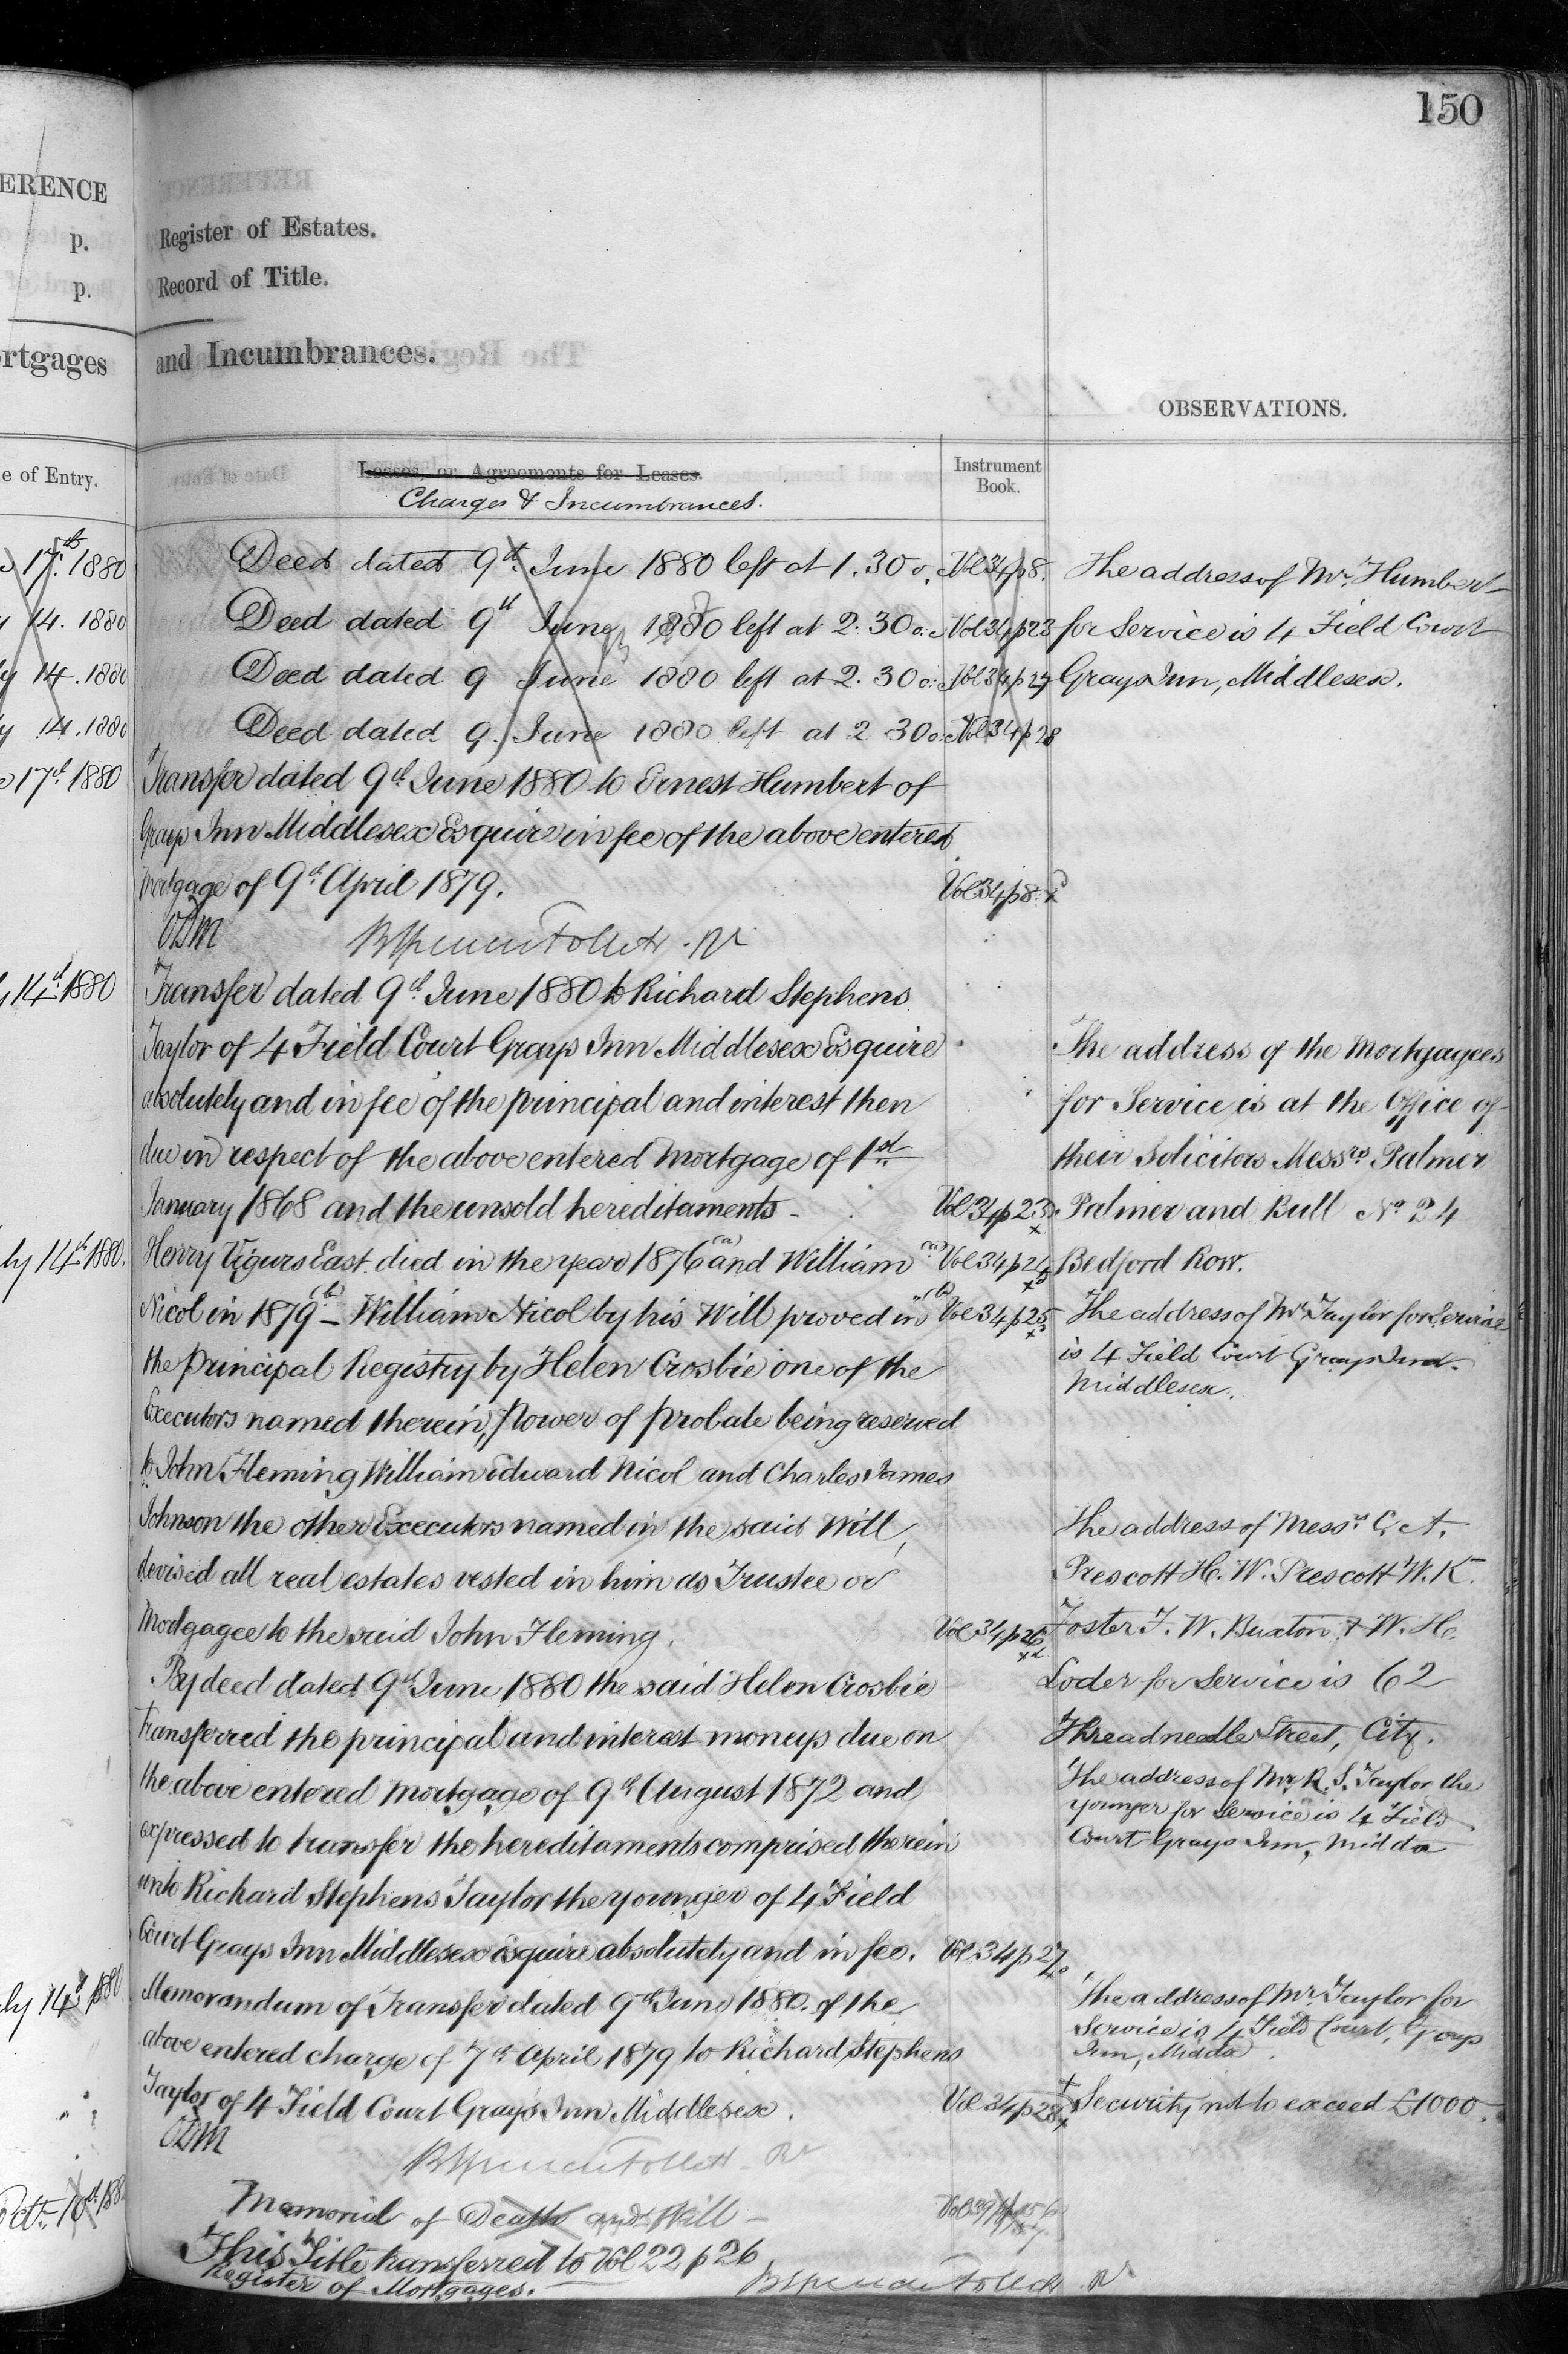 150
ERENCE
p.
p.
rtgages
e of Entry.
17th 1880
14. 1880
y 14. 1880
y 14. 1880
17th 1880
14th 1880
ly 14th 1880.
ly 14th 1880.
Register of Estates.
Record of Title.
and Incumbrances.
OBSERVATIONS.
Leases, or Agreements for Leases.
Charges & Incumbrances.
Instrument
Book.
Deed dated 9th June 1880 left at 1.30 o. Vol 34 p 8.
Deed dated 9th June 1880 left at 2.30 o. Vol 34 p 23
Deed dated 9 June 1880 left at 2.30 o. Vol 34 p 27
Deed dated 9. June 1880 left at 2 30 o. Vol 34 p 28
Transfer dated 9th June 1880 to Ernest Humbert of
Grays Inn Middlesex Esquire in fee of the above entered
Mortgage of 9th April 1879. Vol 34 p 8.
Transfer dated 9th June 1880 to Richard Stephens
Taylor of 4 Field Court Grays Inn Middlesex Esquire
absolutely and in fee of the principal and interest then
due in respect of the above entered Mortgage of 1st
January 1868 and the unsold hereditaments - Vol 34 p 23
Henry Vigurs East died in the year 1876 (a) and William (a) Vol 34 p 24
Nicol in 1879 (b) - William Nicol by his Will proved in (b) Vol 34 p 25
the principal Registry by Helen Crosbie one of the
Executors named therein, power of probate being reserved
to John Fleming William Edward Nicol and Charles James
Johnson the other Executors named in the said Will,
devised all real estates vested in him as Trustee or
Mortgagee to the said John Fleming. Vol 34 p 26
By deed dated 9th June 1880 the said Helen Crosbie
transferred the principal and interest moneys due on
the above entered Mortgage of 9th August 1872 and
expressed to transfer the hereditaments comprised therein
unto Richard Stephens Taylor the younger of 4 Field
Court Grays Inn Middlesex Esquire absolutely and in fee. Vol 34 p 27
Memorandum of Transfer dated 9th June 1880 of the
above entered charge of 7th April 1879 to Richard Stephens
Taylor of 4 Field Court Gray's Inn Middlesex. Vol 34 p 28
Memorial of Death and Will -
This Title transferred to Vol 22 p 26
Register of Mortgages.
The address of Mr. Humbert
for Service is 4 Field Court
Grays Inn, Middlesex.
The address of the Mortgagees
for Service is at the Office of
their Solicitors Messrs Palmer
Palmer and Bull No 24
Bedford Row.
The address of Mr Taylor for Service
is 4 Field Court Grays Inn.
Middlesex.
The address of Messrs C. A.
Prescott H. W. Prescott W. K.
Foster F. W. Buxton & W. H.
Loder for Service is 62
Threadneedle Street, City.
The address of Mr R. S. Taylor the
younger for Service is 4 Field
Court Grays Inn, Middx
The address of Mr. Taylor for
Service is 4 Field Court, Grays
Inn, Middx.
Security not to exceed £1000.